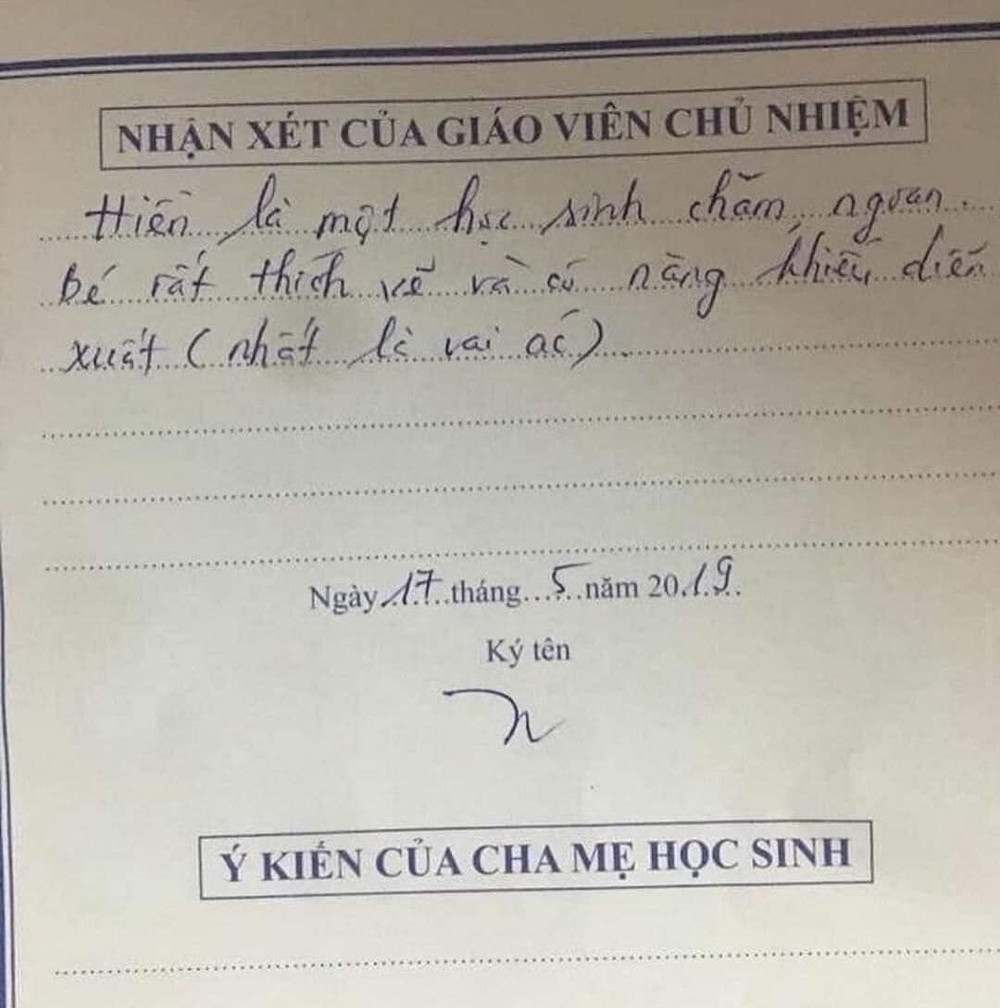 NHẬN XÉT CỦA GIÁO VIÊN CHỦ NHIỆM
Hiền là một học sinh chăm, ngoan.
bé rất thích vẽ và có năng khiếu diễn
xuất (nhất là vai ác)
Ngày 17 tháng 5 năm 2019
Ký tên
Ý KIẾN CỦA CHA MẸ HỌC SINH